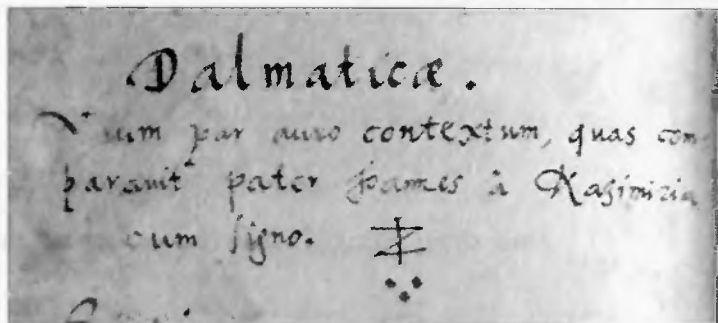 Dalmaticæ.
Vnum par auro contextum, quas com-
parauit pater Joannes à Kasimiria
cum signo.